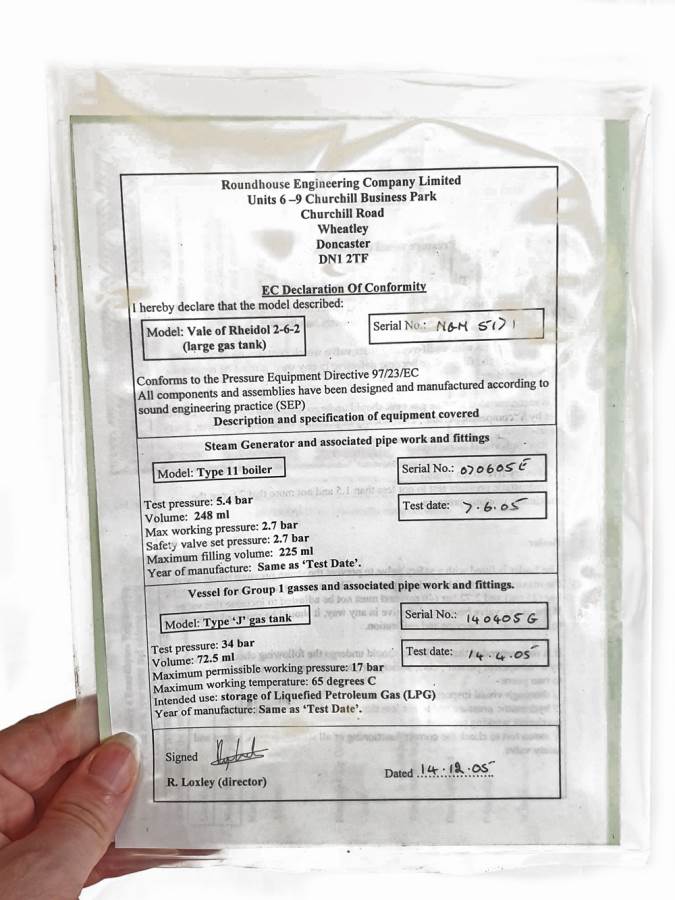 Roundhouse Engineering Company Limited
Units 6 –9 Churchill Business Park
Churchill Road
Wheatley
Doncaster
DN1 2TF
EC Declaration Of Conformity
I hereby declare that the model described:
Model: Vale of Rheidol 2-6-2
(large gas tank)
Serial No.:
Conforms to the Pressure Equipment Directive 97/23/EC
All components and assemblies have been designed and manufactured according to
sound engineering practice (SEP)
Description and specification of equipment covered
Steam Generator and associated pipe work and fittings
Model: Type 11 boiler
Serial No.: 070605E
Test pressure: 5.4 bar
Volume: 248 ml
Max working pressure: 2.7 bar
Safety valve set pressure: 2.7 bar
Maximum filling volume: 225 ml
Year of manufacture: Same as ‘Test Date’.
Test date: 7.6.05
Vessel for Group 1 gasses and associated pipe work and fittings.
Model: Type ‘J’ gas tank
Serial No.: 140405G
Test pressure: 34 bar
Volume: 72.5 ml
Maximum permissible working pressure: 17 bar
Maximum working temperature: 65 degrees C
Intended use: storage of Liquefied Petroleum Gas (LPG)
Year of manufacture: Same as ‘Test Date’.
Test date: 14.4.05
Signed
R. Loxley (director)
Dated 14.12.05